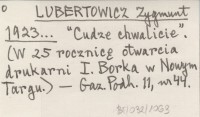 0
LUBERTOWICZ Zygmunt
1923.... "Cudze chwalicie".
(W 25 rocznicę otwarcia
drukarni I. Borka w Nowym
Targu.) — Gaz. Podh. 11, nr 44.